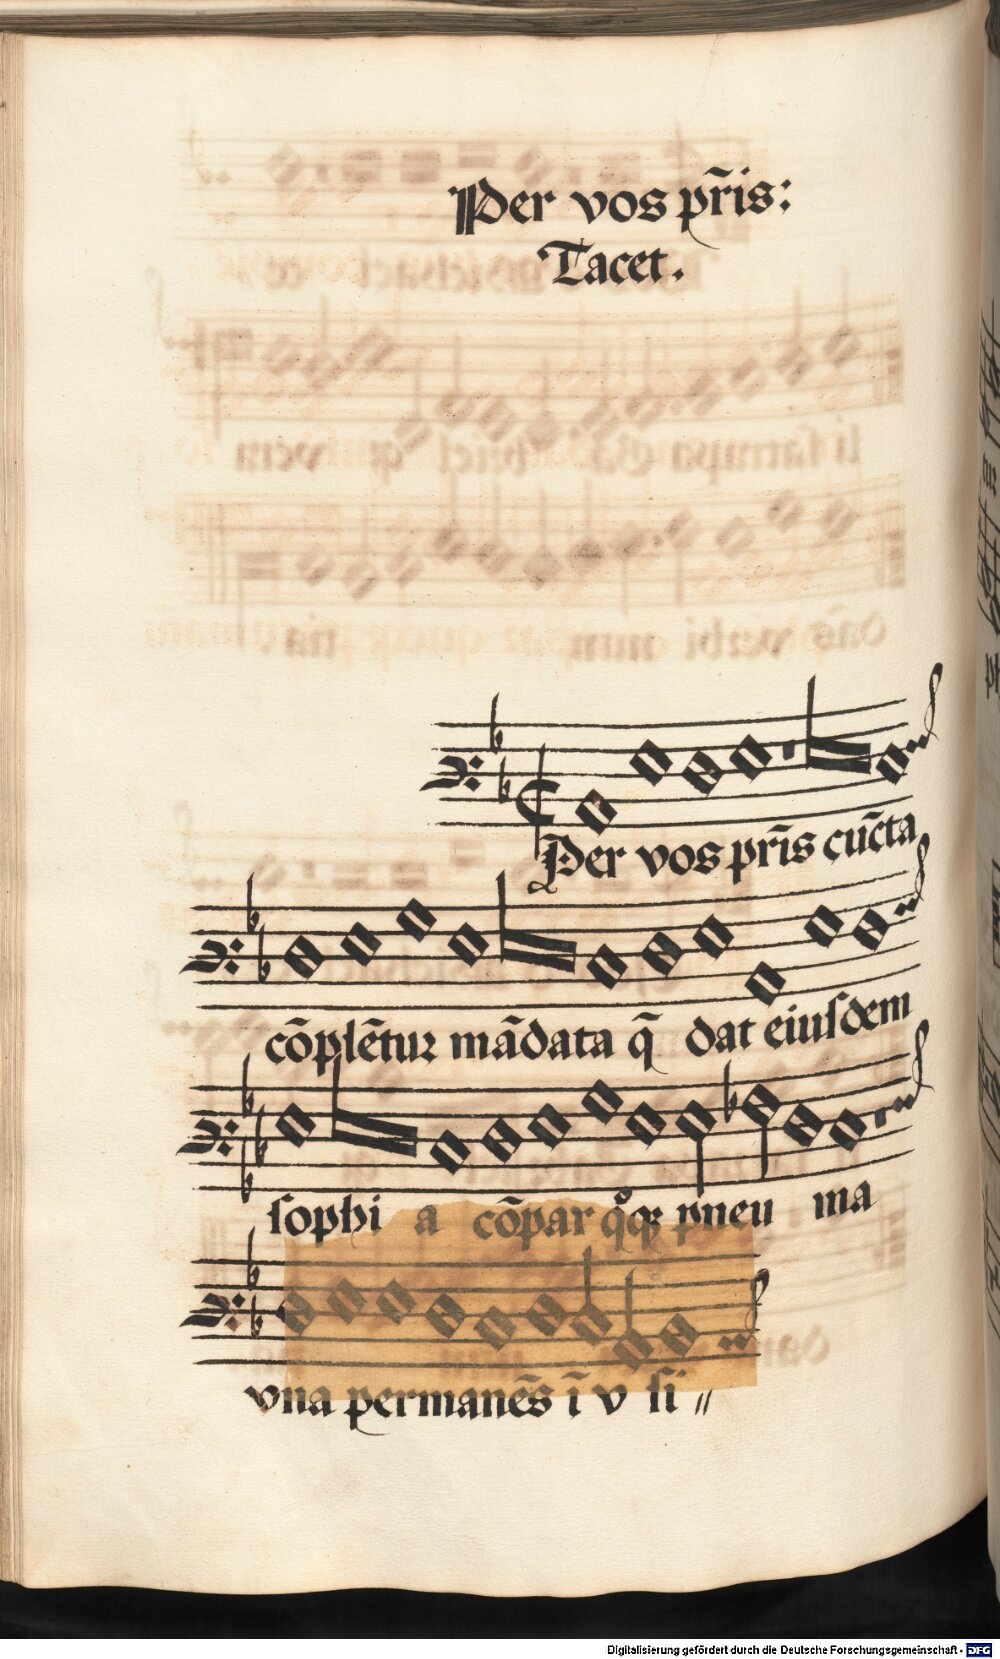 Per vos pr̃is:
Tacet.
Per vos pr̃is cũcta
cõplẽtur mãdata q̃ dat eiuſdem
ſophi a cõpar pneu ma
vna permanẽs ĩ v ſi //
Digitalisierung gefördert durch die Deutsche Forschungsgemeinschaft - DFG